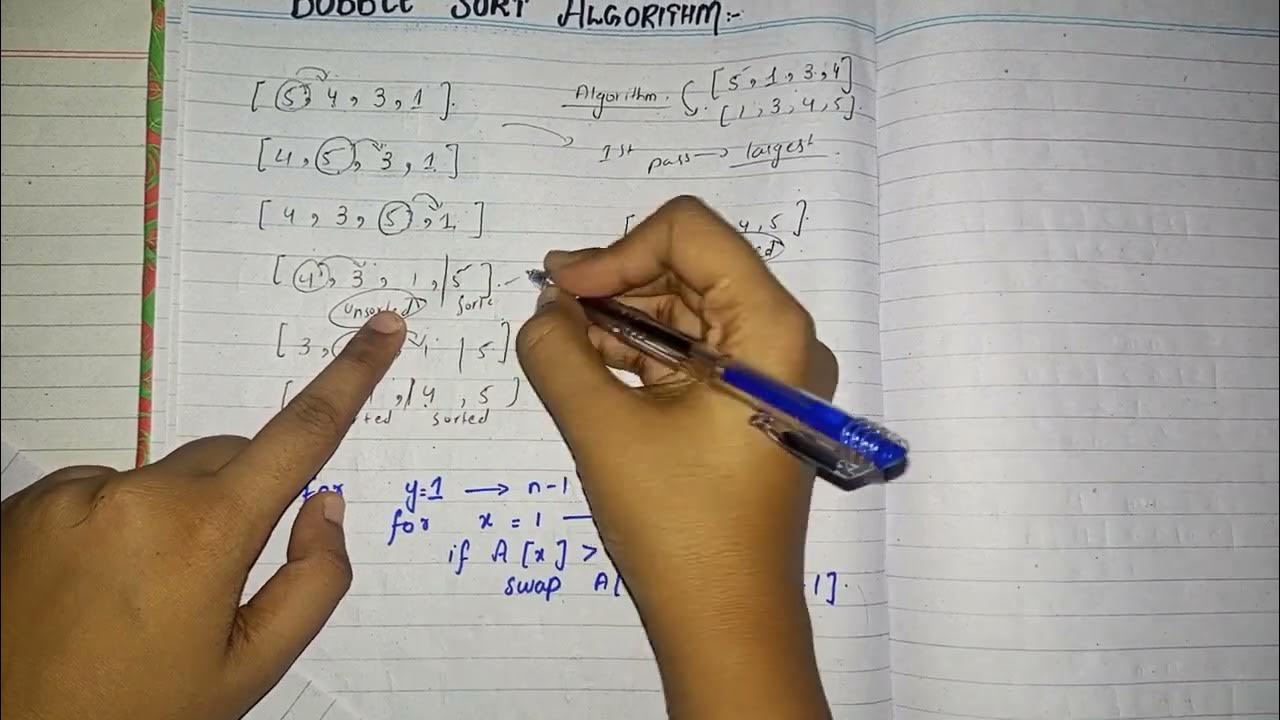 BUBBLE SORT ALGORITHM:-
[ 5, 4, 3, 1 ].
[ 4, 5, 3, 1 ]
[ 4, 3, 5, 1 ]
[ 4, 3, 1, | 5 ].
unsorted
[ 3, 1 | 5 ]
[ , | 4, 5 ]
sorted
Algorithm. [ 5, 1, 3, 4 ]
[ 1, 3, 4, 5 ].
1st pass → largest
[ 4, 5 ].
for y=1 → n-1
for x = 1
if A[x] >
swap A[ 1].